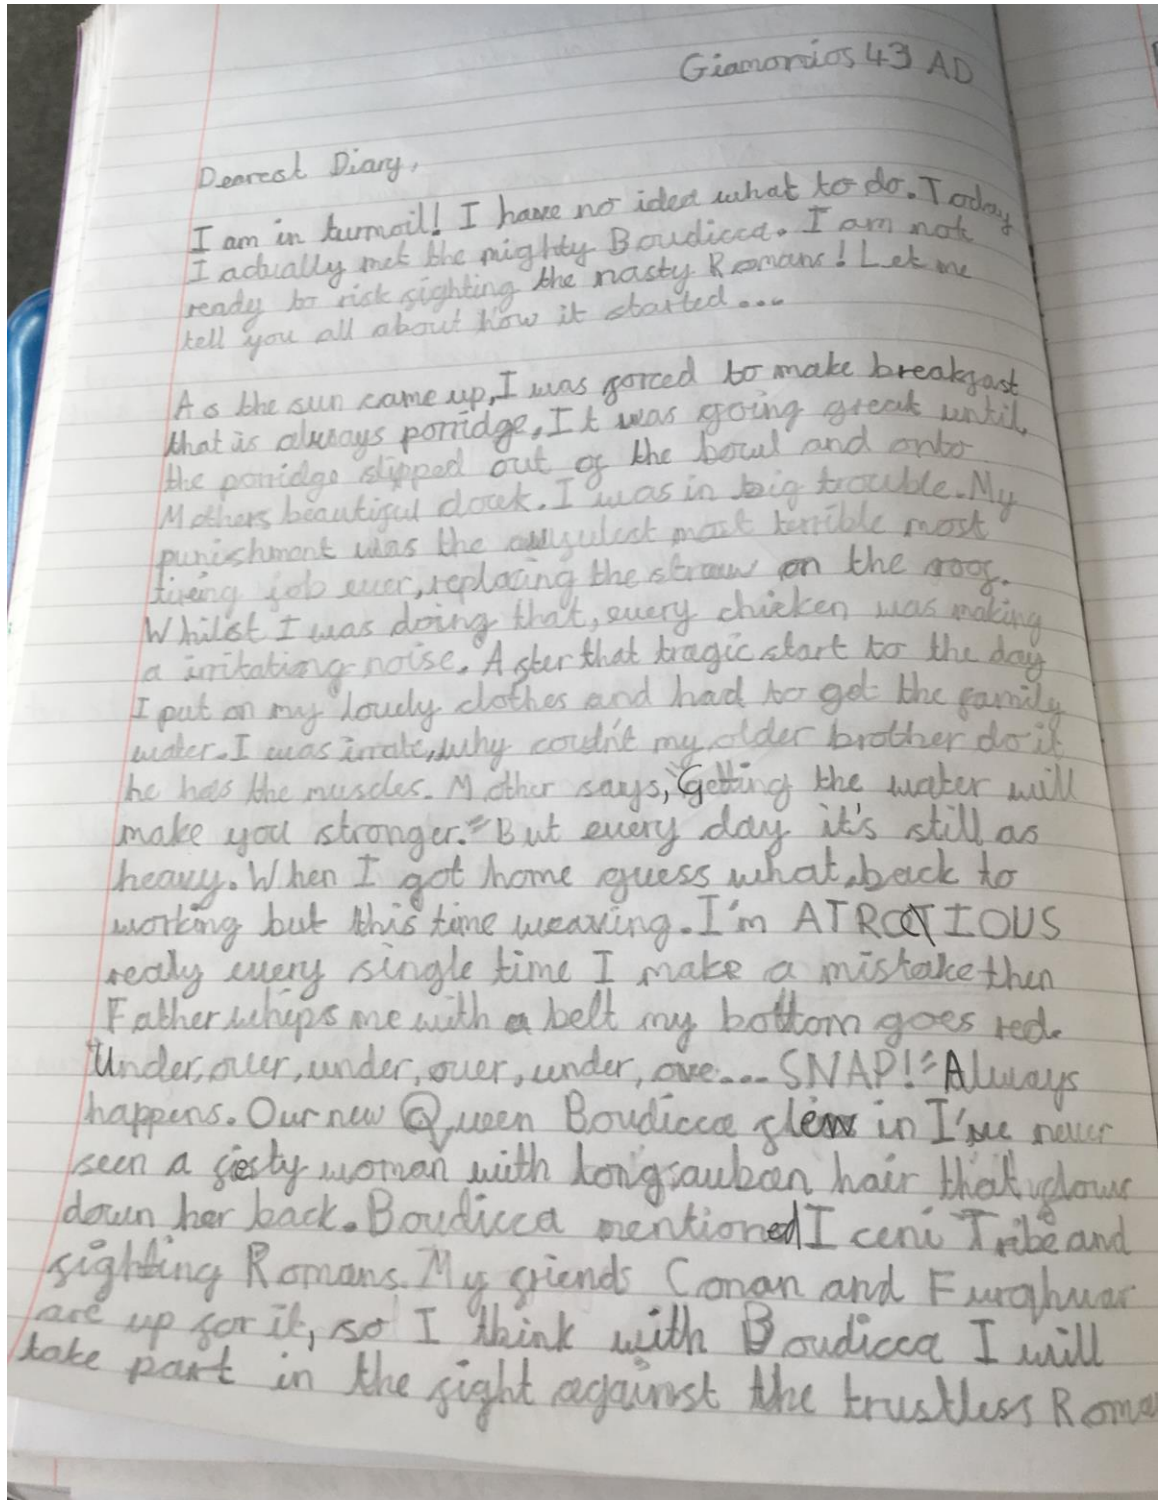 Giamonios 43 AD
Dearest Diary,
I am in turmoil! I have no idea what to do. Today
I actually met the mighty Boudicca. I am not
ready to risk fighting the nasty Romans! Let me
tell you all about how it started...
As the sun came up, I was forced to make breakfast
that is always porridge, It was going great until
the porridge slipped out of the bowl and onto
Mothers beautiful cloak. I was in big trouble. My
punishment was the most terrible most
tiring job ever, replacing the straw on the roof.
Whilst I was doing that, every chicken was making
a irritating noise. After that tragic start to the day
I put on my lovely clothes and had to get the family
water. I was irrate, why couldn't my older brother do it
he has the muscles. Mother says, "Getting the water will
make you stronger." But every day it's still as
heavy. When I got home guess what, back to
working but this time weaving. I'm ATROCIOUS
realy every single time I make a mistake then
Father whips me with a belt my bottom goes red.
"Under, over, under, over, under, ove... SNAP!" Always
happens. Our new Queen Boudicca flew in I've never
seen a fiesty woman with long, hair that flows
down her back. Boudicca mentioned Iceni Tribe and
fighting Romans. My friends Conan and
are up for it, so I think with Boudicca I will
take part in the fight against the trustless Roma